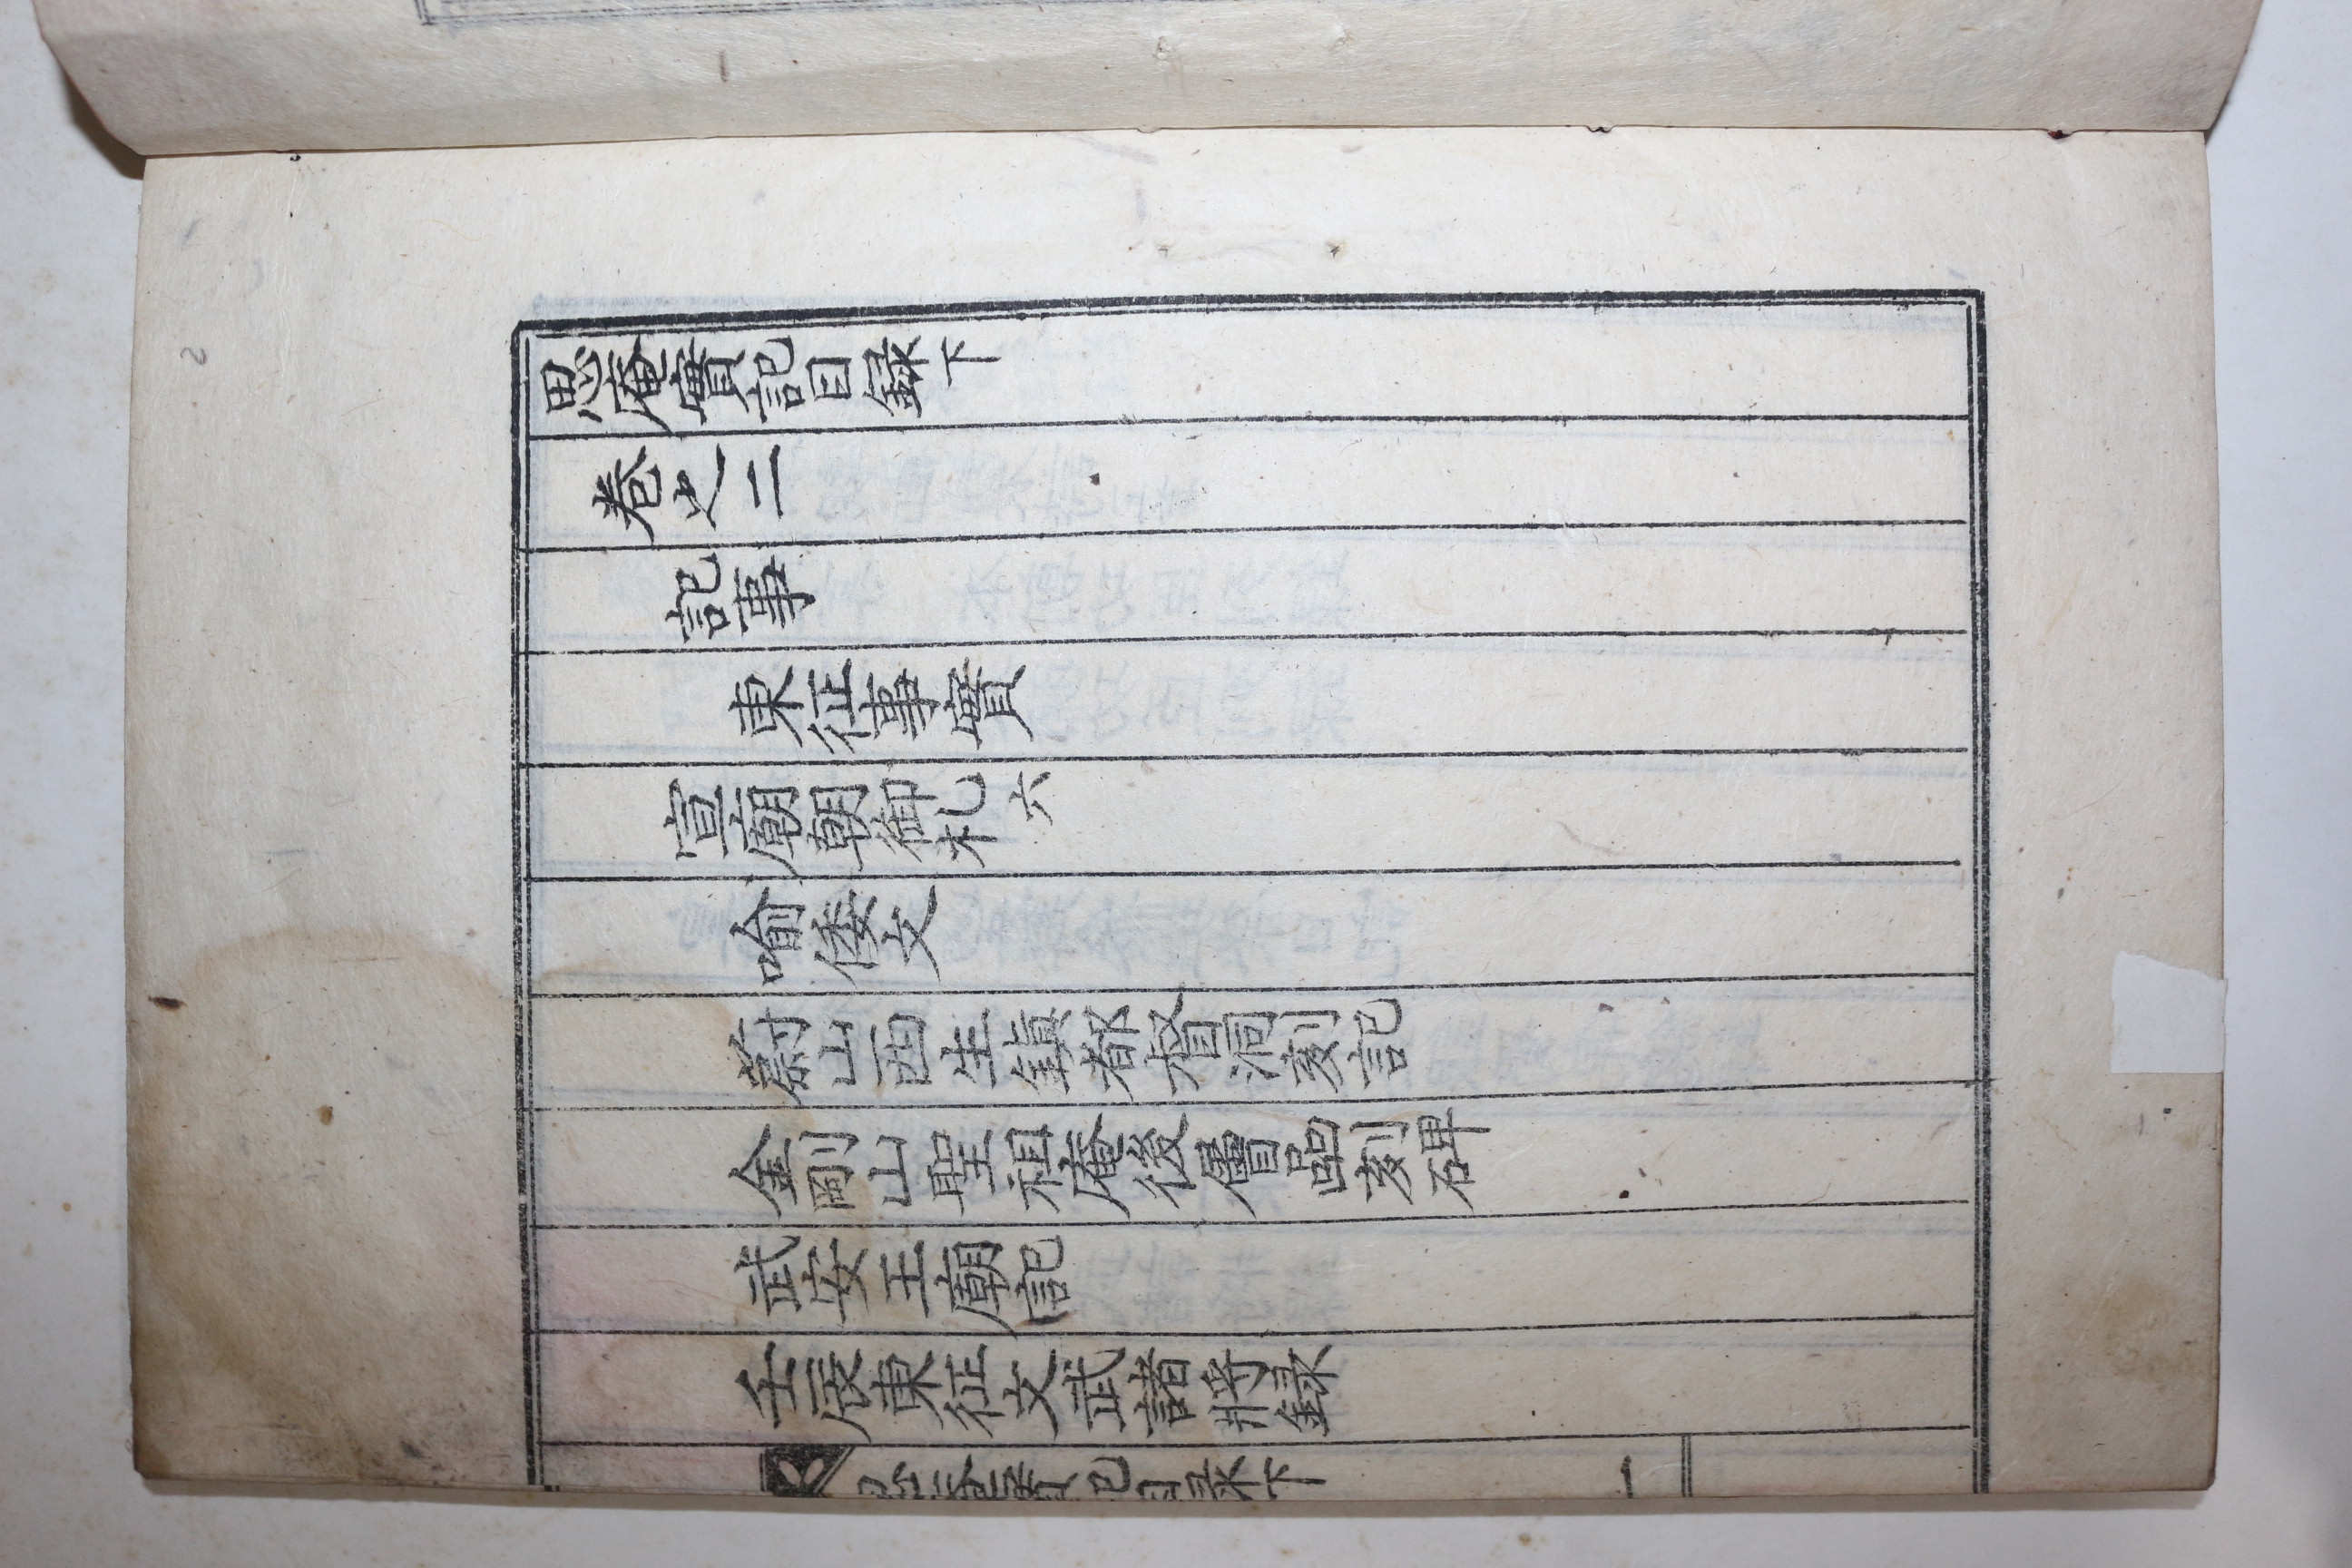 2
思庵實記目録下
卷之二
記事
東征事實
宣廟朝御札 六
喻倭文
蔚山西生鎭都督洞刻記
金剛山聖祖庵後層嵓刻碑
武安王廟記
壬辰東征文武諸將録
思庵實記目录下 一